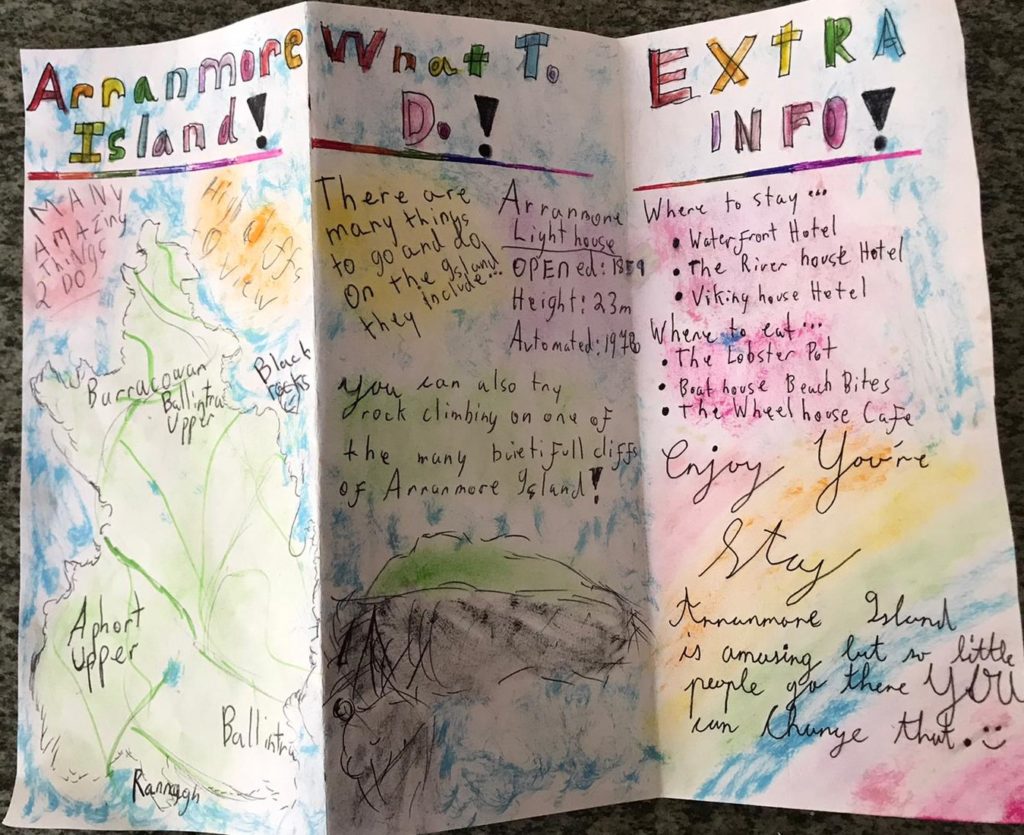 Arranmore
Island!
MANY
AMAZing
THINGS
2 DO
Black
rocks
Burracowan
Ballintra
Upper
Aphort
Upper
Ballintra
Rannagh
What To
Do!
There are
many things
to go and do
On the Island
they include...
Arranmore
Lighthouse
OPENed: 1859
Height: 23m
Automated: 1976
You can also try
rock climbing on one of
the many buietifull cliffs
of Arranmore Island!
EXtRA
INFO!
Where to stay...
• Waterfront Hotel
• The River house Hotel
• Viking house Hotel
Where to eat...
• The Lobster Pot
• Boat house Beach Bites
• The Wheelhouse Cafe
Enjoy You're
Stay
Arranmore Island
is amusing but so little
people go there YOU
can Change that. :)